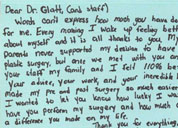 Dear Dr. Glatt, (and staff)
Words can't express how much you have done
for me. Every morning I wake up feeling better
about myself and it is all thanks to you. My
parents never supported my decision to have
plastic surgery, but once we met with you and
your staff my family and I felt 100% better.
Your advice, your work, and your incredible
made my pre and post surgery so much easier.
I wanted to let you know how lucky I was
have you perform my surgery and how much of
a difference you made on my life.
Thank you for everything,